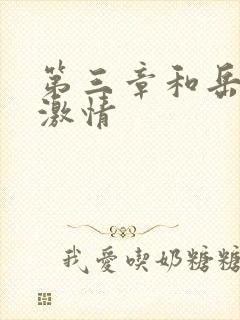 第三章和岳
激情
我愛喫奶糖糖